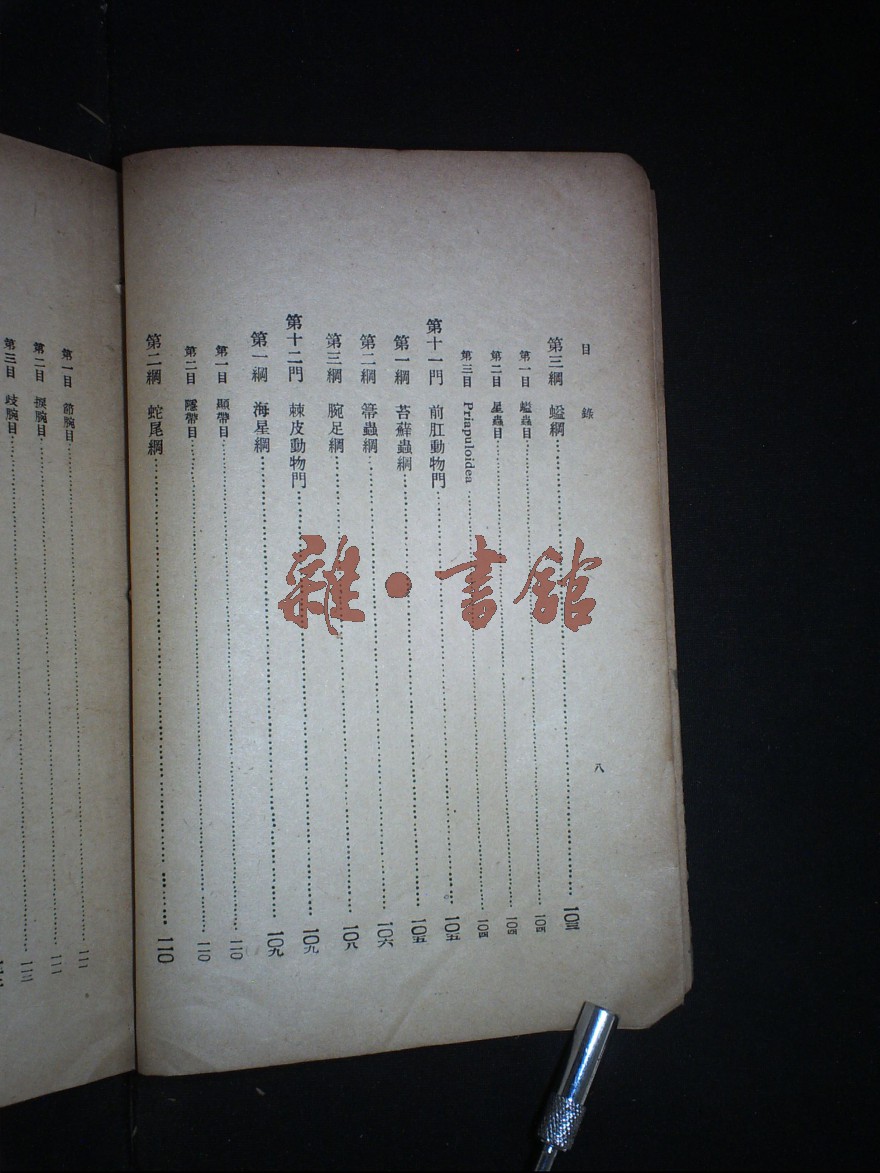 目錄
第三綱 螠綱 一〇三
第一目 螠蟲目 一〇四
第二目 星蟲目 一〇四
第三目 Priapuloidea 一〇四
第十一門 前肛動物門 一〇五
第一綱 苔蘚蟲綱 一〇五
第二綱 箒蟲綱 一〇六
第三綱 腕足綱 一〇八
第十二門 棘皮動物門 一〇九
第一綱 海星綱 一〇九
第一目 顯帶目 一一〇
第二目 隱帶目 一一〇
第二綱 蛇尾綱 一一〇
八
第一目 節腕目 一一一
第二目 捩腕目 一一一
第三目 歧腕目 一一二
雜·書館